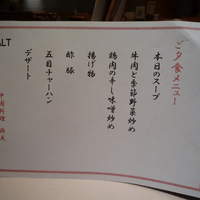 ALT
ご夕食メニュー
本日のスープ
牛肉と季節野菜炒め
鶏肉の辛し味噌炒め
揚げ物
酢豚
五目チャーハン
デザート
中国料理